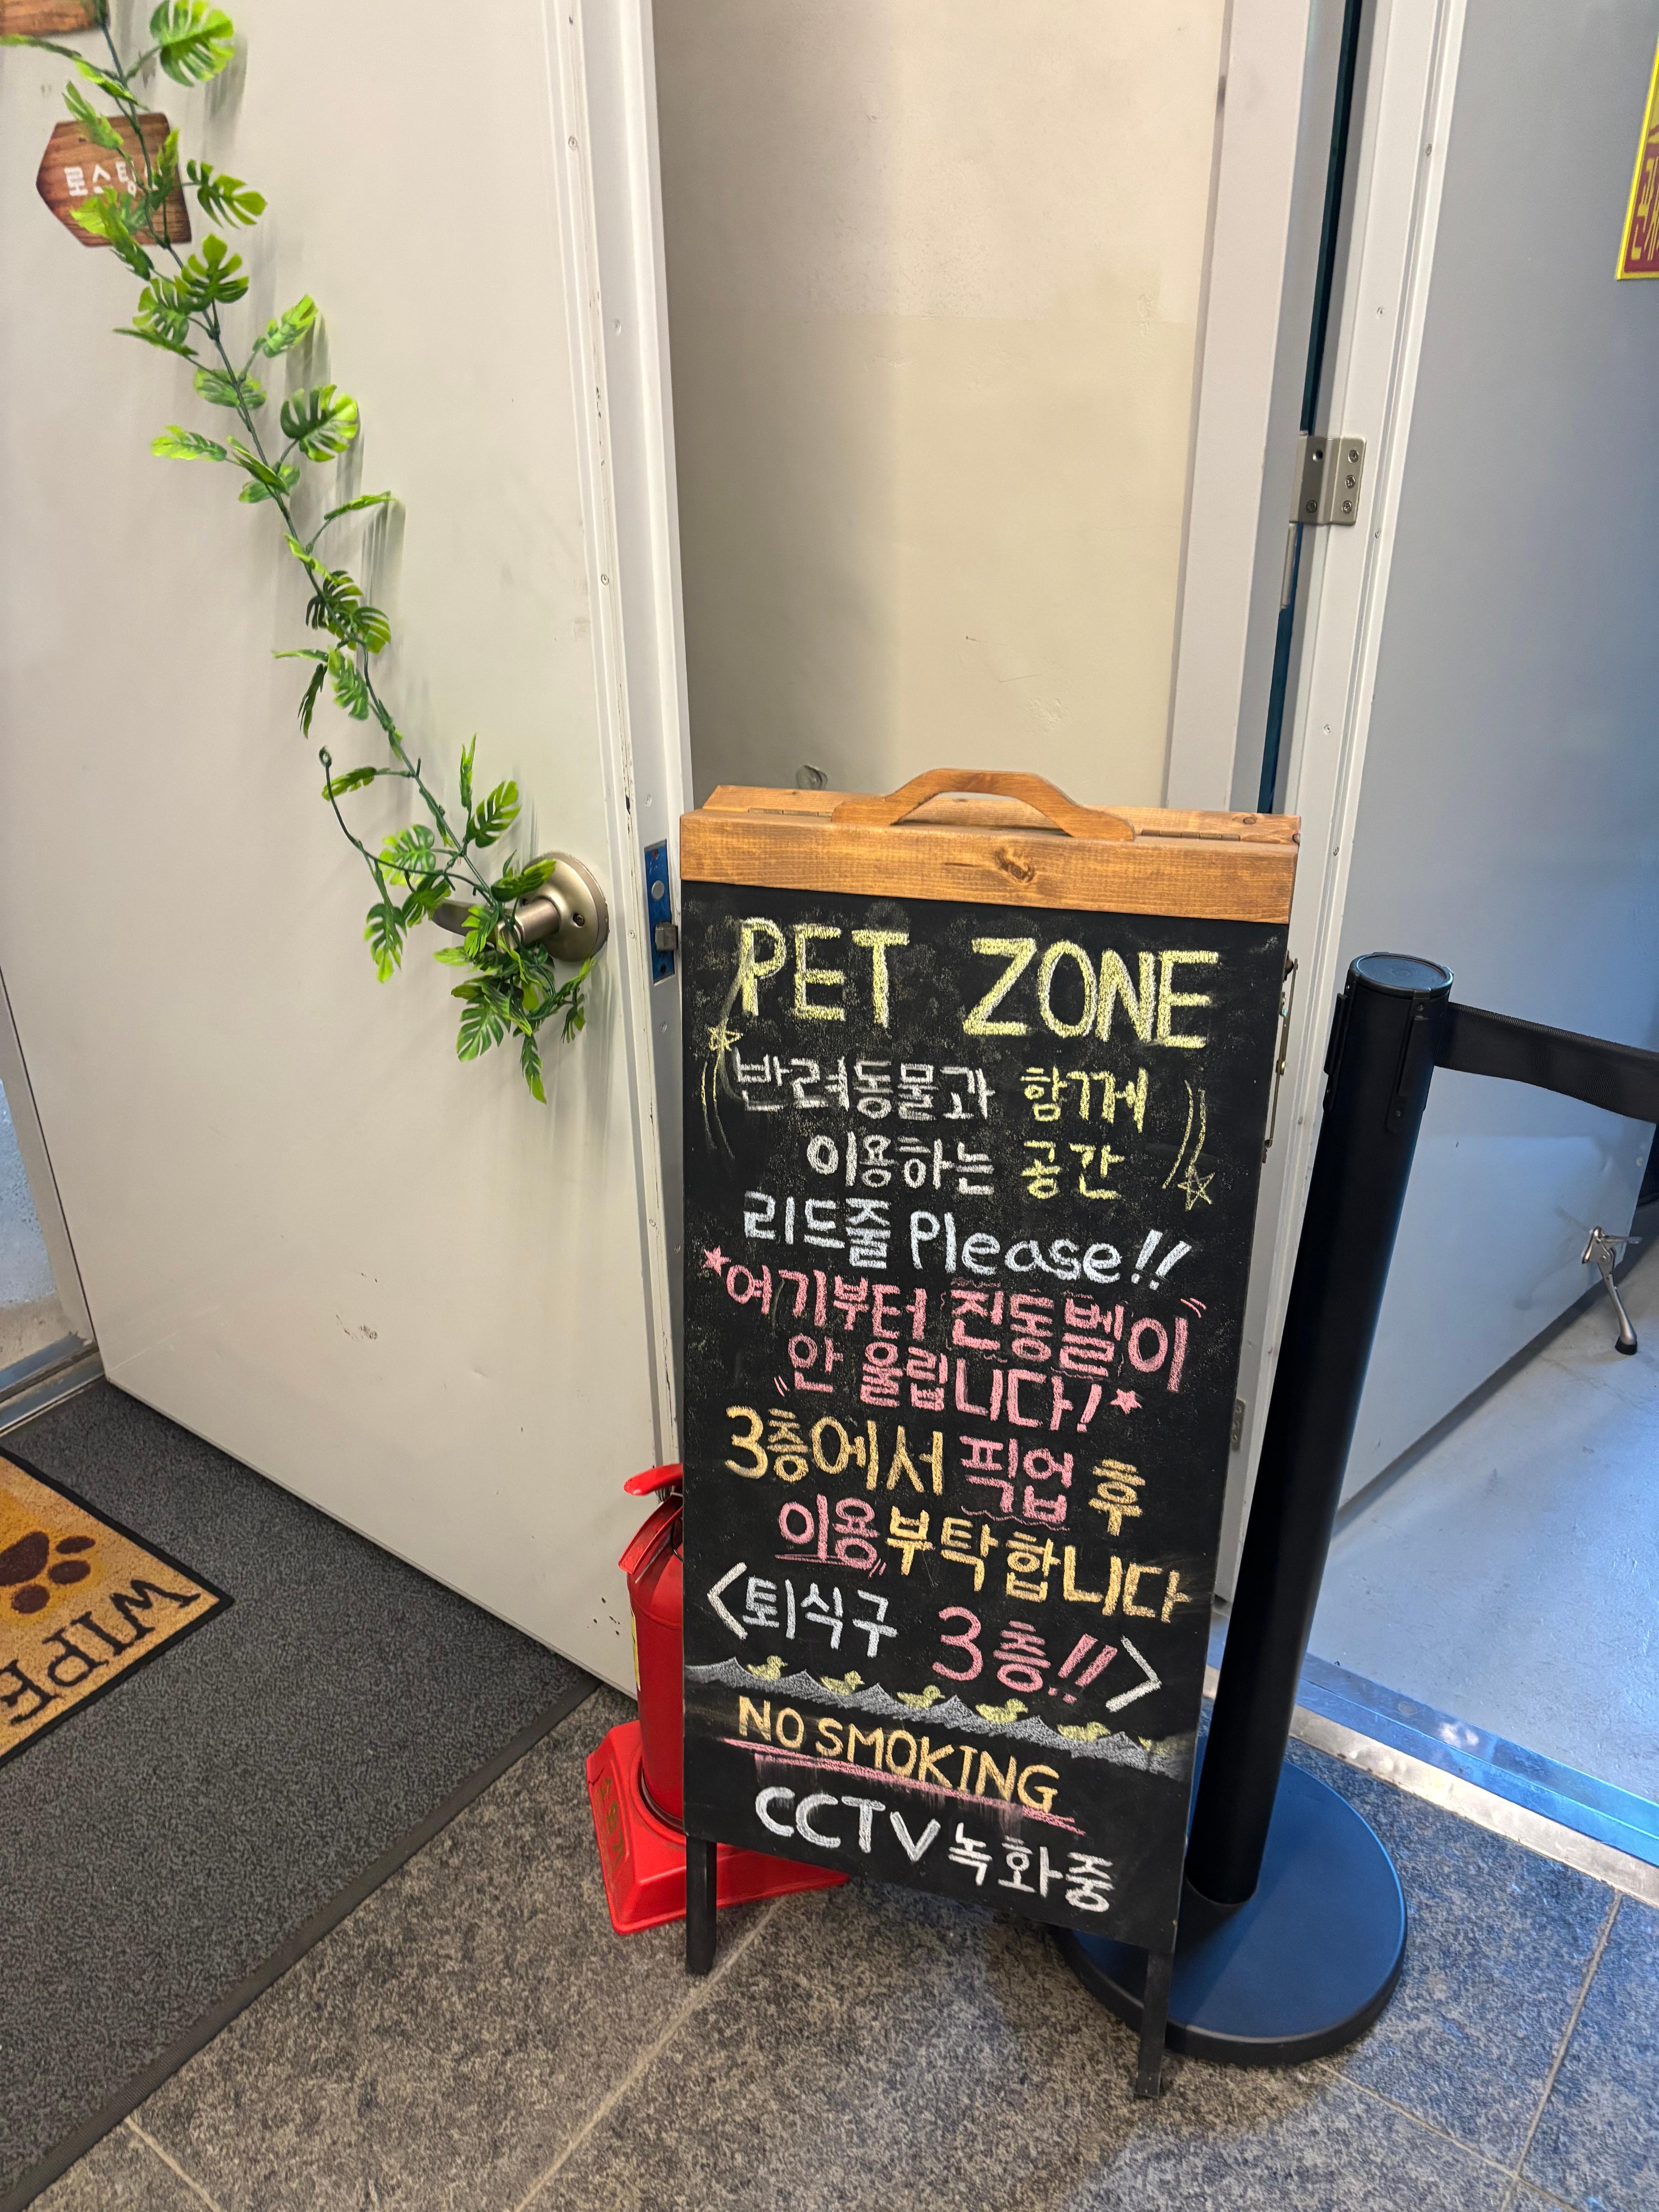 로스팅
PET ZONE
반려동물과 함께
이용하는 공간
리드줄 Please!!
*여기부터 진동벨이
안 울립니다!*
3층에서 픽업 후
이용부탁합니다
<퇴식구 3층!!>
NO SMOKING
CCTV 녹화중
WIPE
소화기